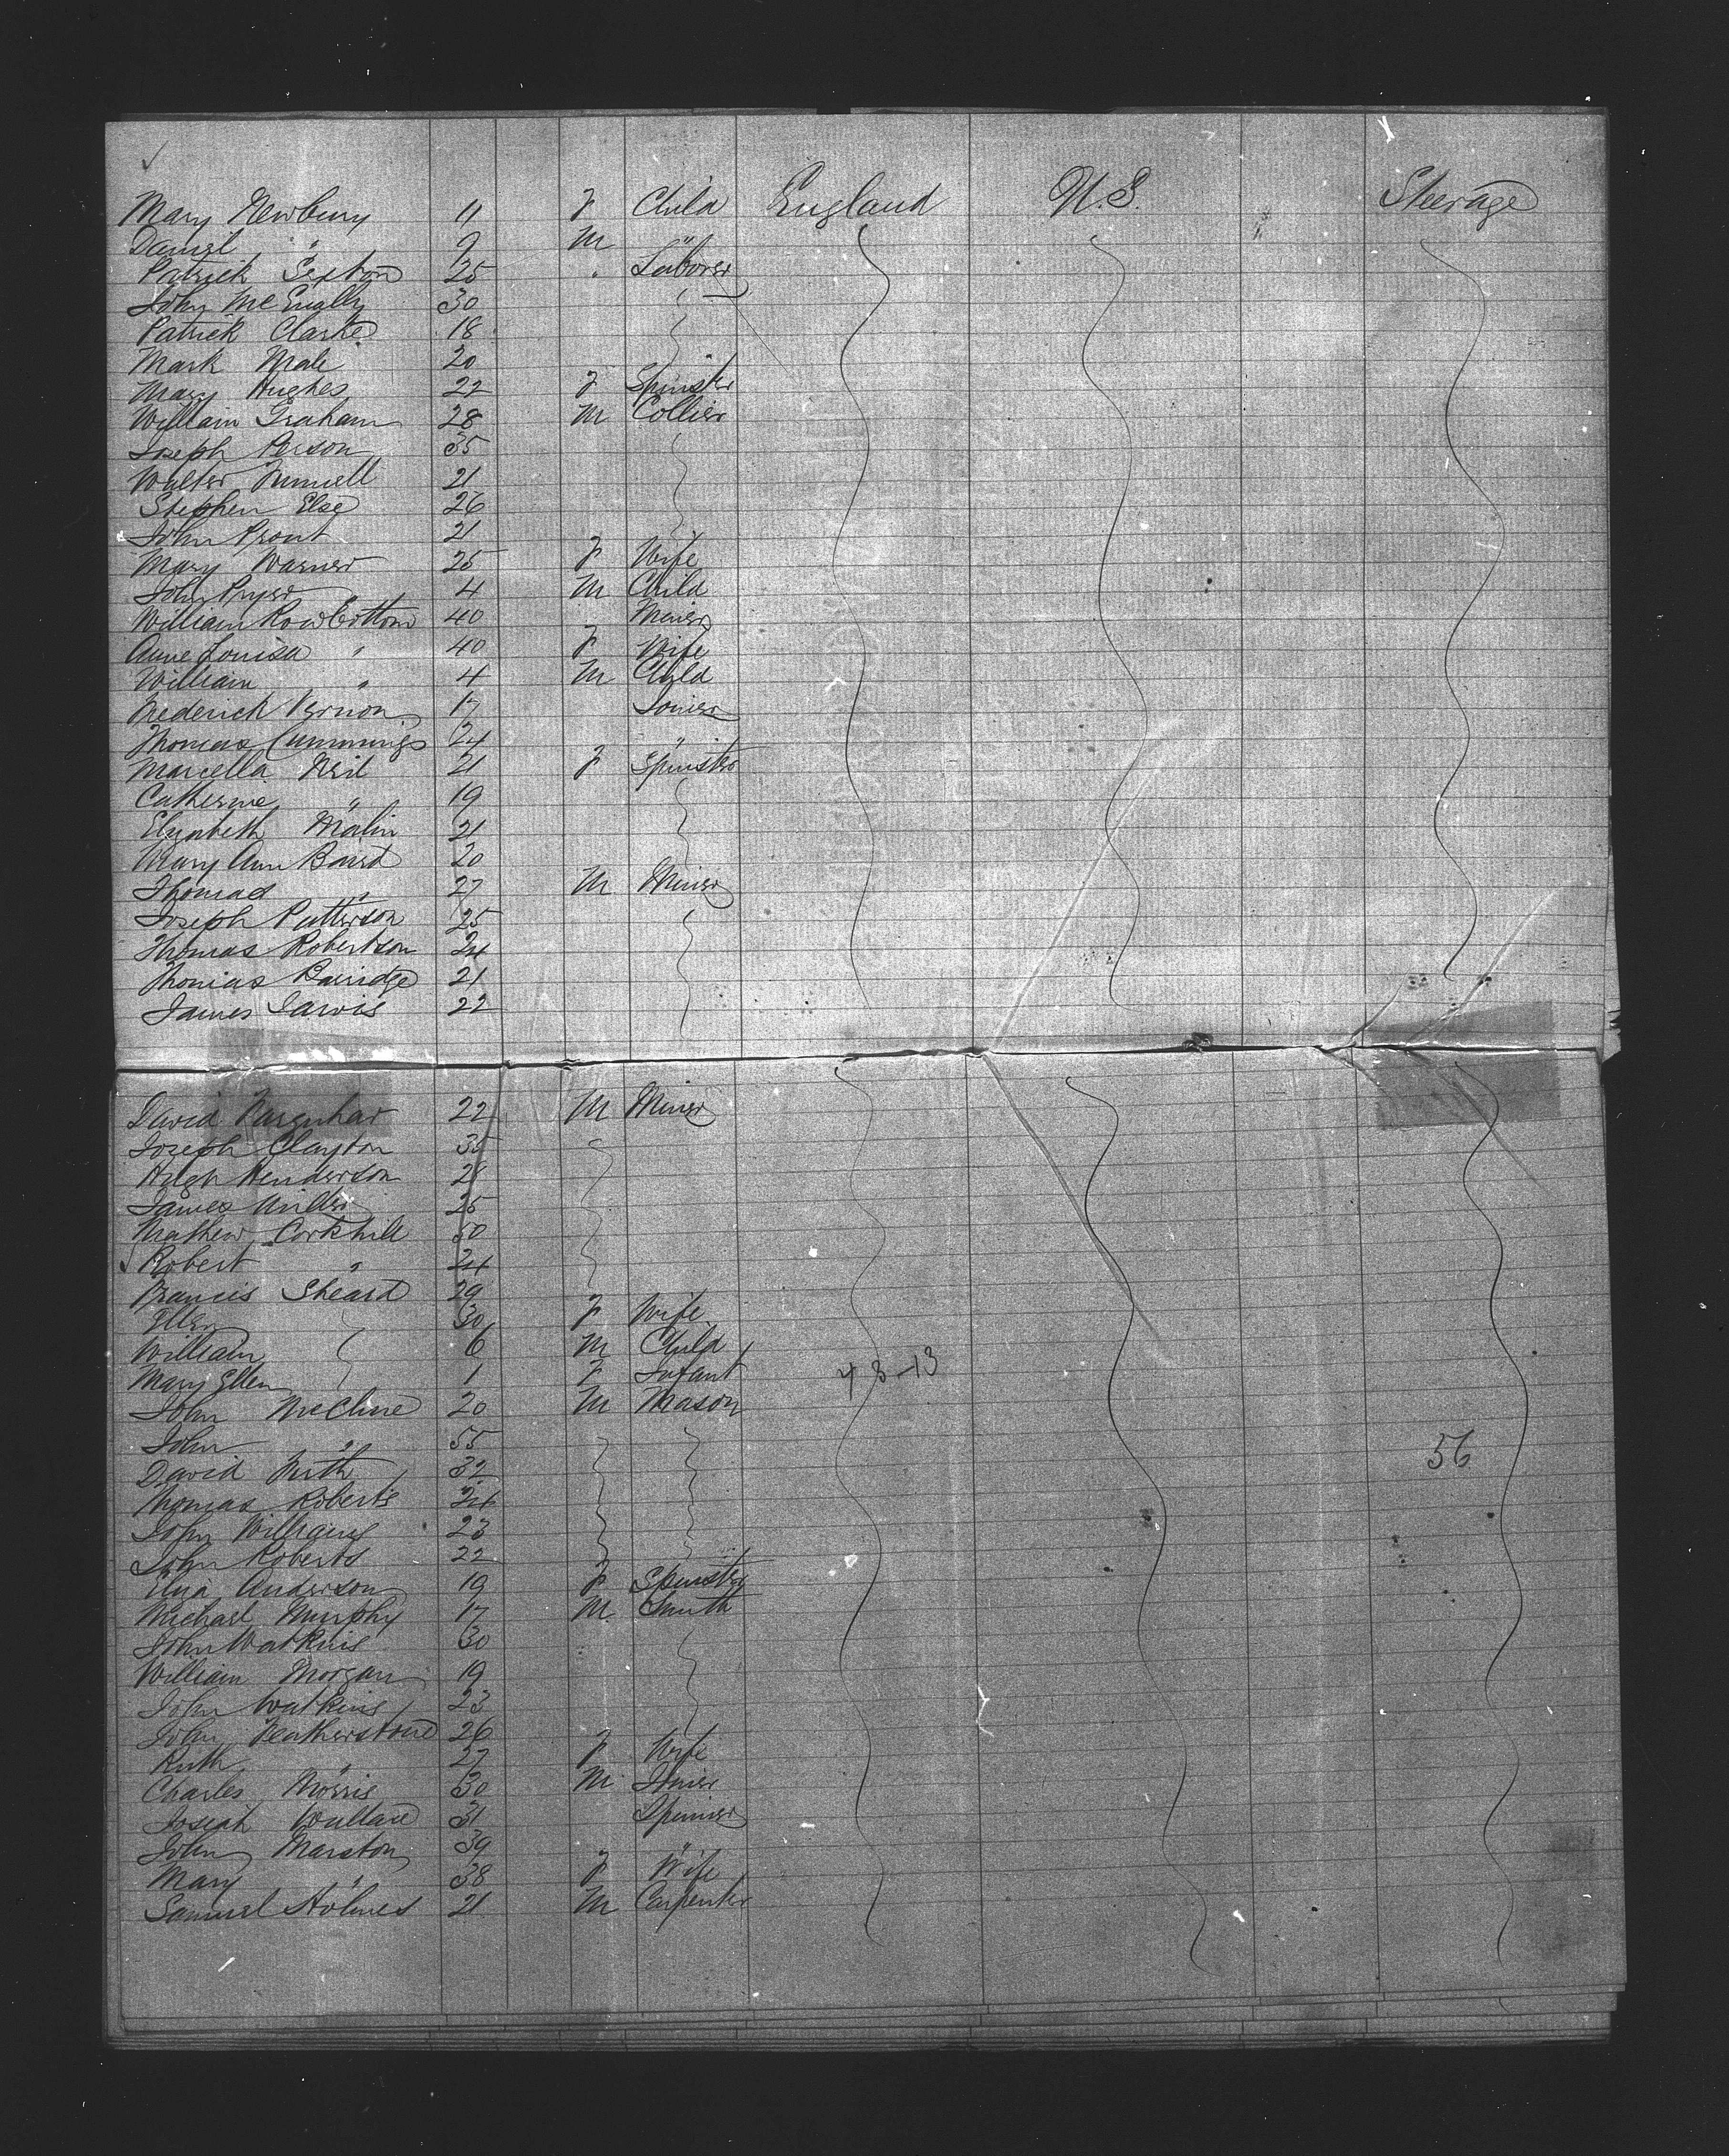 Mary Newbury 11 F Child England U.S. Steerage
Daniel " 9 M "
Patrick Sexton 25 " Laborer
John McEnally 30
Patrick Clarke 18
Mark Male 20
Mary Hughes 22 F Spinster
William Graham 28 M Collier
Joseph Person 35
Walter 21
Stephen Else 26
John Prout 21
Mary Warner 25 F Wife
John Pryor 4 M Child
William Rowbottom 40 Miner
Anne Louisa " 40 F Wife
William " 4 M Child
Frederick Vernon 17 Joiner
Thomas Cummings 24 "
Marcella Neil 21 F Spinster
Catherine " 19
Elizabeth Malin 21
Mary Ann Baird 20
Thomas " 27 M Miner
Joseph Patterson 25
Thomas Robertson 24
Thomas 21
James Jarvis 22
David Farquhar 22 M Miner
Joseph Clayton 35
Hugh Henderson 28
James 25
Mathew Corkhill 50
Robert " 24
Francis Sheard 29
Ellen 30 F Wife
William 6 M Child
Mary Ellen 1 F Infant 4 3-13
John McClure 20 M Mason
John " 55 56
David 32
Thomas Roberts 24
John Williams 23
John Roberts 22
Eliza Anderson 19 F Spinster
Michael Murphy 17 M Smith
John Watkins 30
William Morgan 19
John Watkins 23
John Featherstone 26
Ruth " 27 F Wife
Charles Morris 30 M
Josiah Wallace 31 Spinner
John Marston 39 "
Mary " 38 F Wife
Samuel Holmes 21 M Carpenter